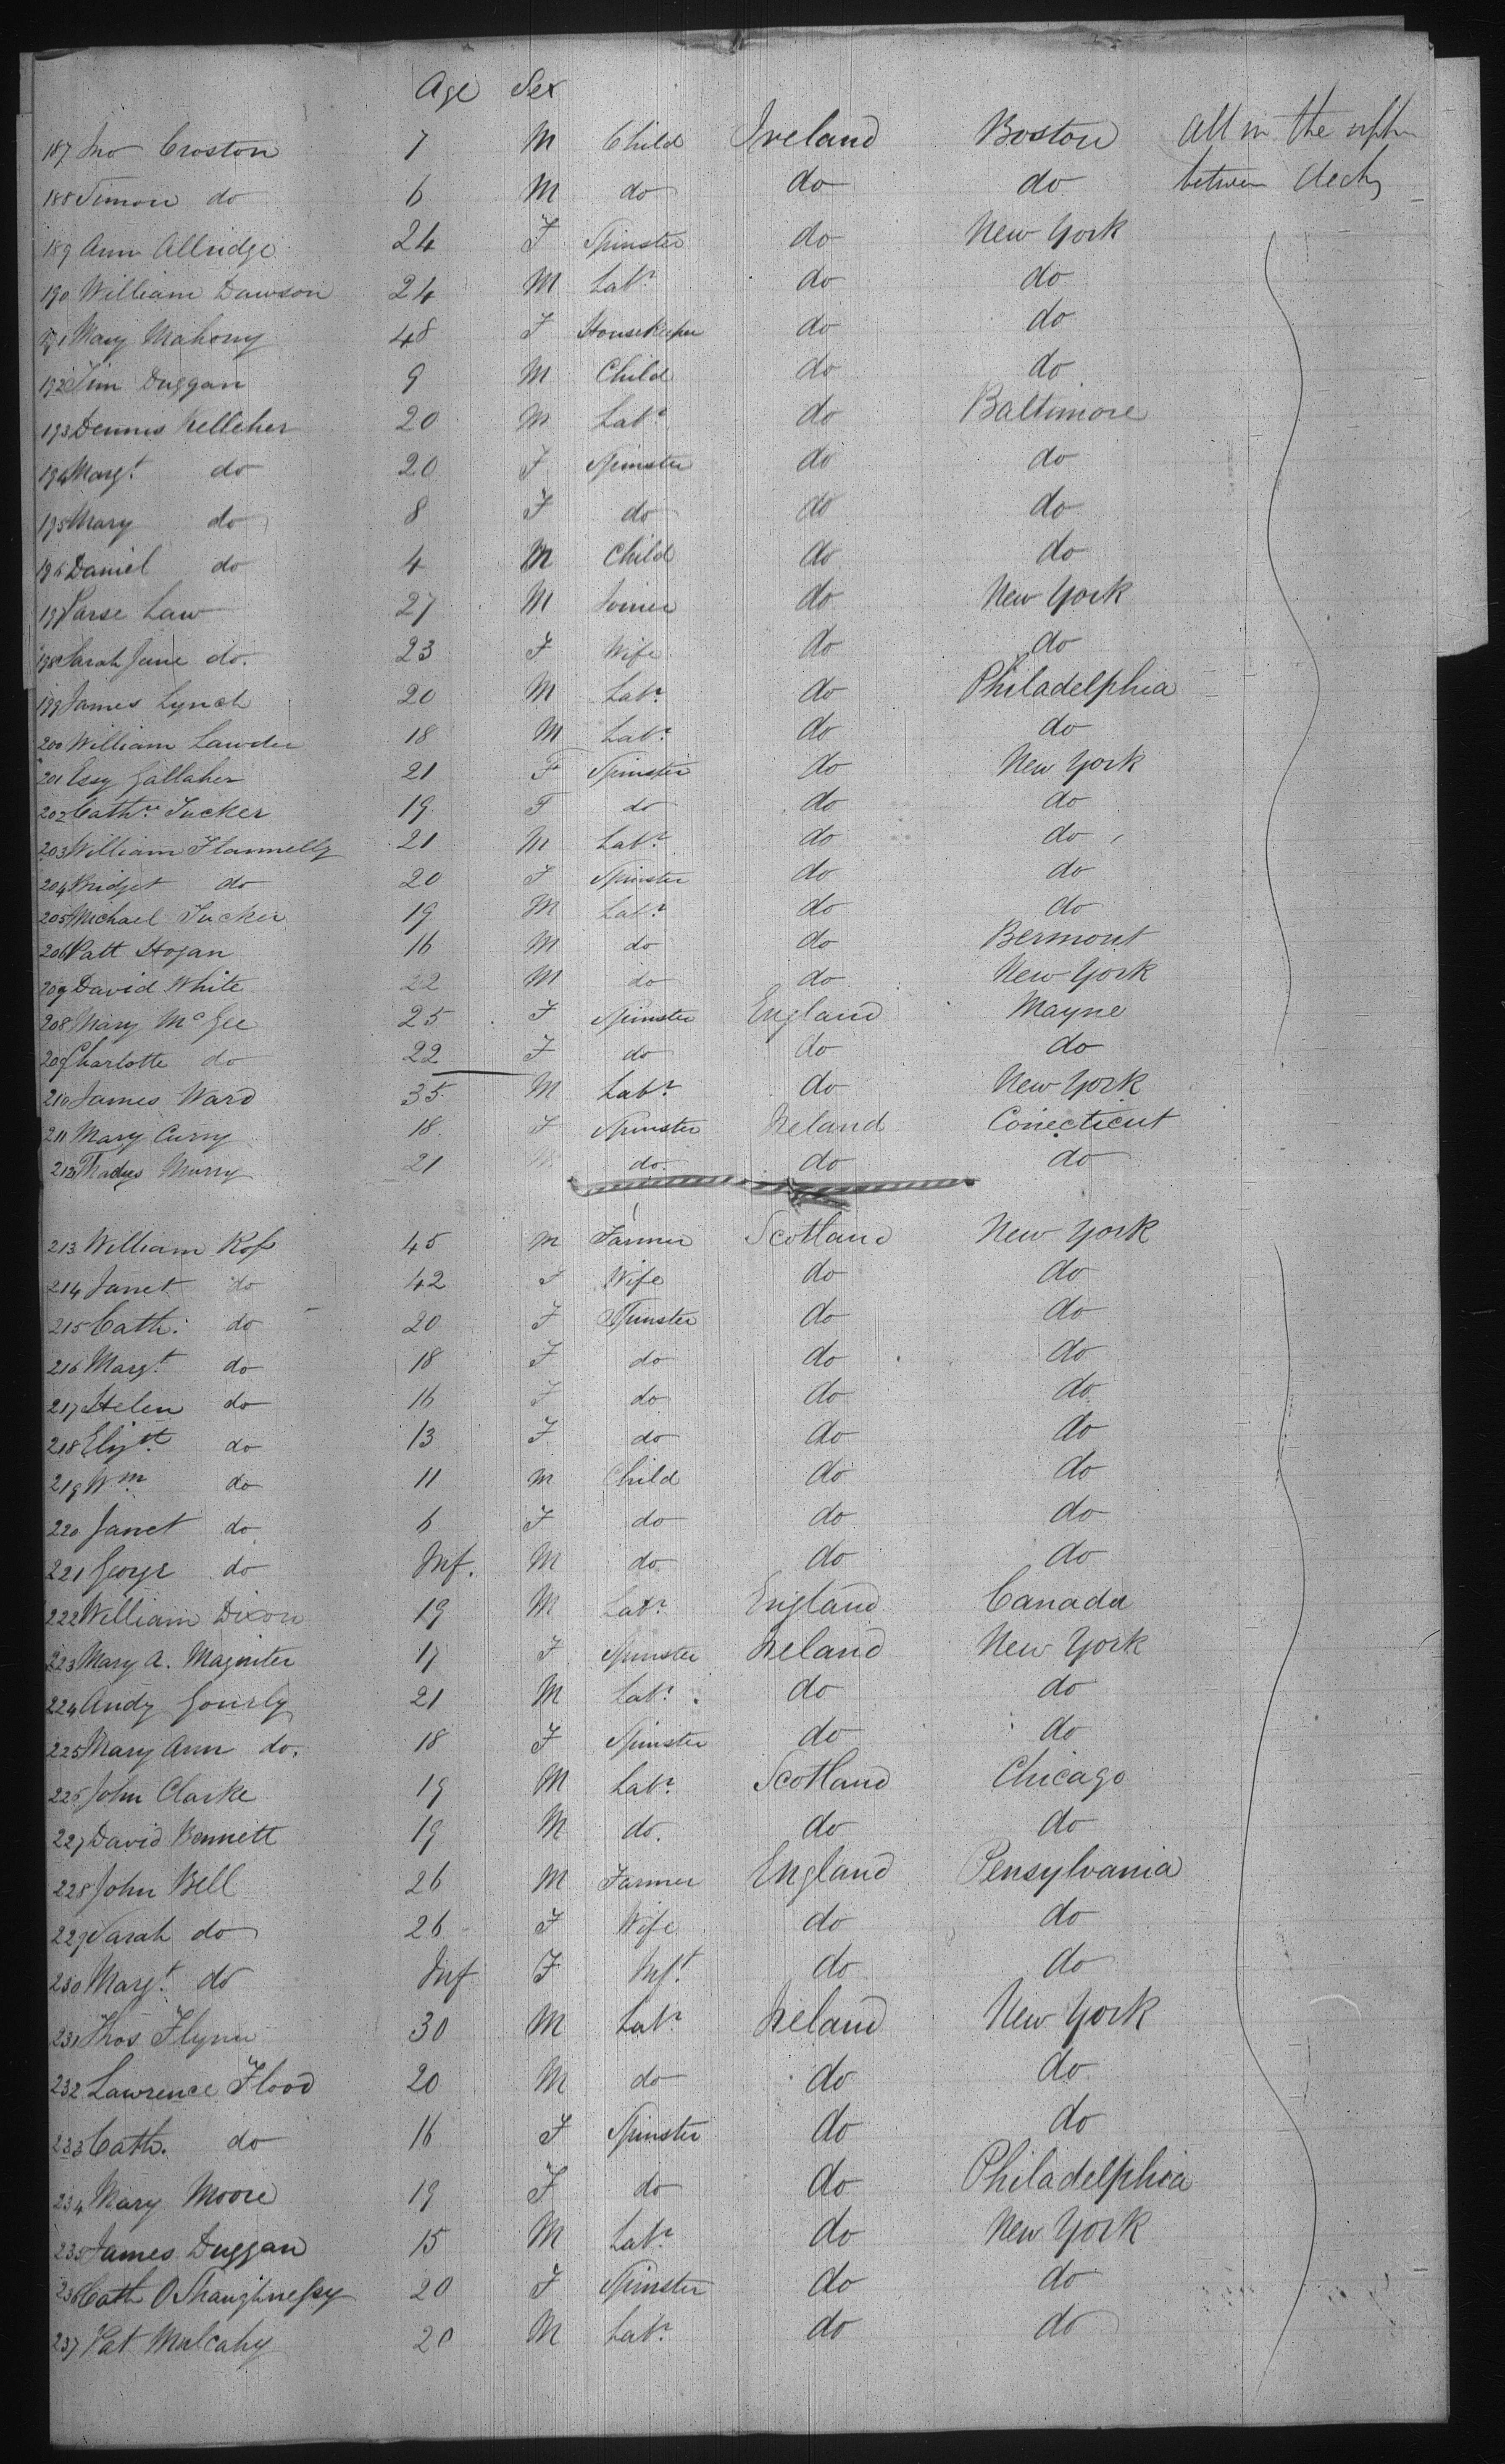 Age Sex
187 Jno Croston 7 M Child Ireland Boston All in the upper
188 Simon do 6 M do do do between decks
189 Ann Allridge 24 F Spinster do New York
190 William Dawson 24 M Labr. do do
191 Mary Mahony 48 F Housekeeper do do
192 Tim Duggan 9 M Child do do
193 Dennis Kelleher 20 M Labr. do Baltimore
194 Margt. do 20 F Spinster do do
195 Mary do 8 F do do do
196 Daniel do 4 M Child do do
197 Parse Law 27 M Joiner do New York
198 Sarah Jane do. 23 F Wife do do
199 James Lynch 20 M Labr. do Philadelphia
200 William Lawder 18 M Labr. do do
201 Essy Gallaher 21 F Spinster do New York
202 Cathne. Tucker 19 F do do do
203 William Flannelly 21 M Labr. do do
204 Bridget do 20 F Spinster do do
205 Michael Tucker 19 M Labr. do do
206 Patt Hogan 16 M do do Bermont
209 David White 22 M do do New York
208 Mary McGee 25 F Spinster England Mayne
209 Charlotte do 22 F do do do
210 James Ward 35 M Labr. do New York
211 Mary Curry 18 F Spinster Ireland Conecticut
212 Thadys Murry 21 M do do do
213 William Ross 45 M Farmer Scotland New York
214 Janet do 42 F Wife do do
215 Cath. do 20 F Spinster do do
216 Margt. do 18 F do do do
217 Helen do 16 F do do do
218 Elizth. do 13 F do do do
219 Wm. do 11 M Child do do
220 Janet do 6 F do do do
221 George do Inf. M do do do
222 William Dixon 19 M Labr. England Canada
223 Mary A. Maginter 17 F Spinster Ireland New York
224 Andy Gourly 21 M Labr. do do
225 Mary Ann do. 18 F Spinster do do
226 John Clarke 19 M Labr. Scotland Chicago
227 David Bennett 19 M do. do do
228 John Bell 26 M Farmer England Pensylvania
229 Sarah do 26 F Wife do do
230 Margt. do Inf F Inft. do do
231 Thos Flynn 30 M Labr. Ireland New York
232 Lawrence Flood 20 M do do do
233 Cath. do 16 F Spinster do do
234 Mary Moore 19 F do do Philadelphia
235 James Duggan 15 M Labr. do New York
236 Cath OShaughnessy 20 F Spinster do do
237 Pat Mulcahy 20 M Labr. do do